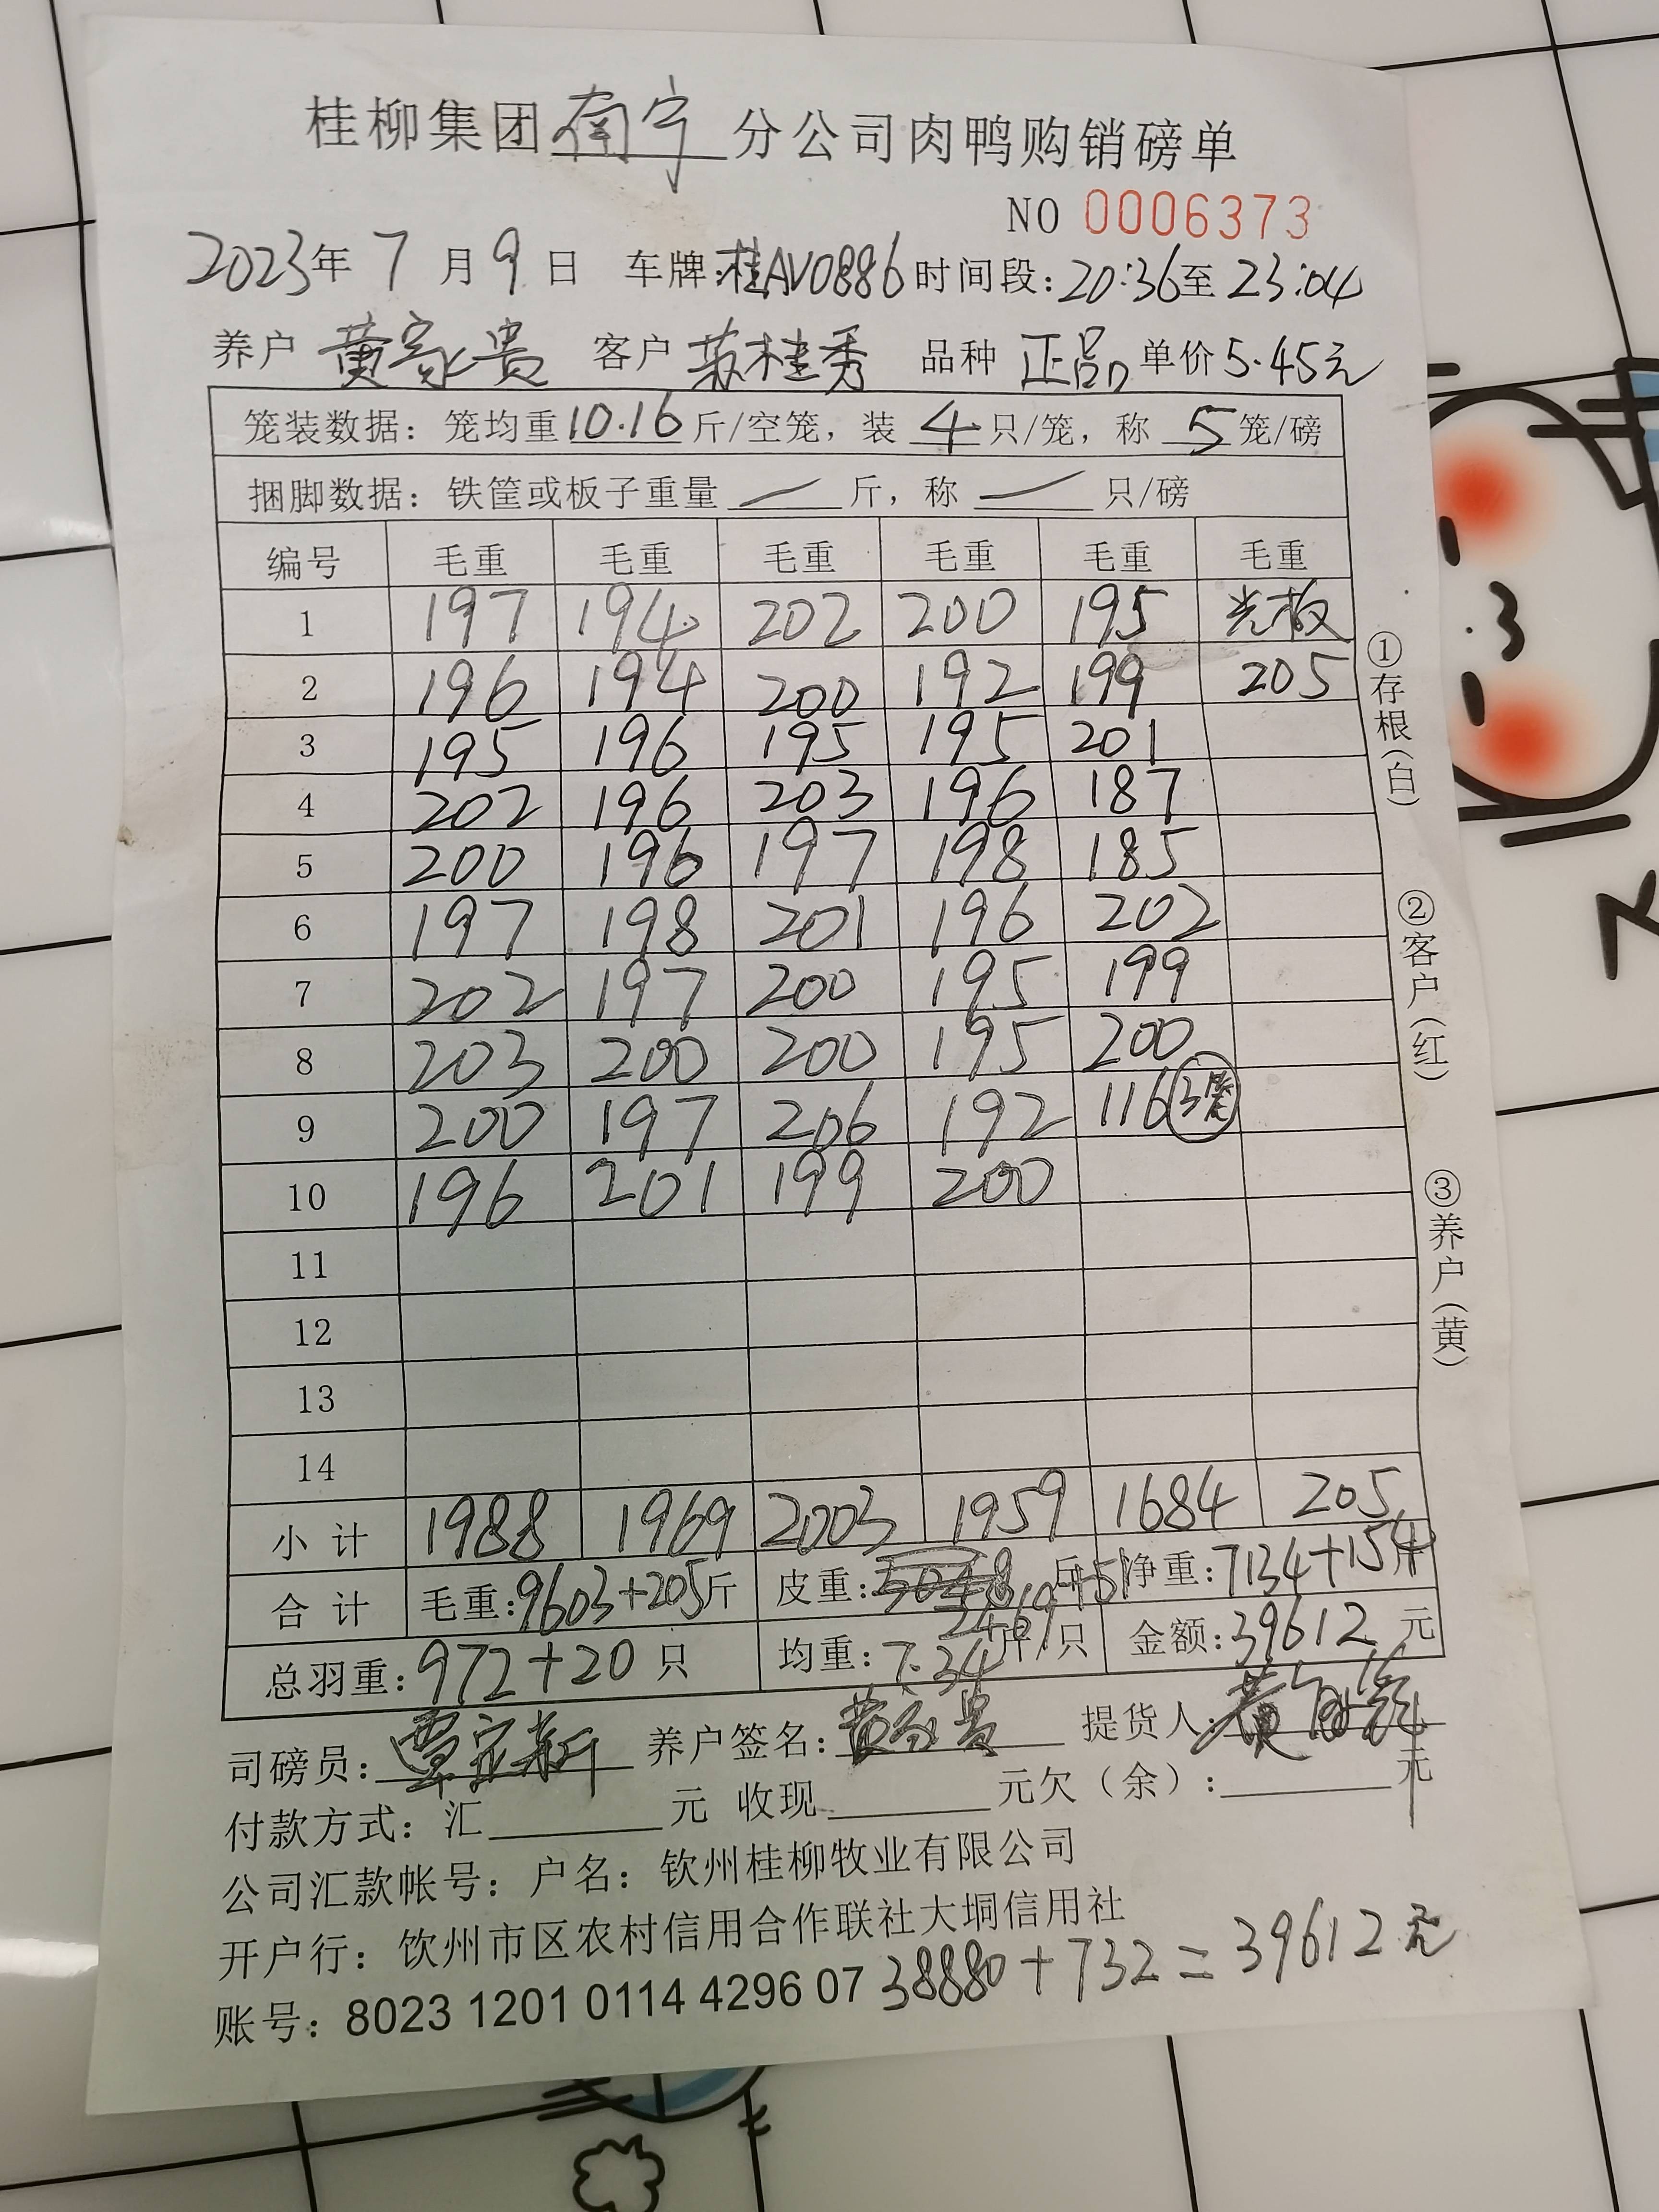 桂柳集团南宁分公司肉鸭购销磅单
NO 0006373
2023年7月9日 车牌:桂AV0886 时间段:20:36至23:04
养户 黄家贵 客户 苏桂秀 品种 正品 单价5.45元
笼装数据：笼均重10.16斤/空笼，装4只/笼，称5笼/磅
捆脚数据：铁筐或板子重量 — 斤，称 — 只/磅
编号 毛重 毛重 毛重 毛重 毛重 毛重
1 197 194 202 200 195 光板
2 196 194 200 192 199 205
3 195 196 195 195 201
4 202 196 203 196 187
5 200 196 197 198 185
6 197 198 201 196 202
7 202 197 200 195 199
8 203 200 200 195 200
9 200 197 206 192 116 3笼
10 196 201 199 200
11
12
13
14
小计 1988 1969 2003 1959 1684 205
合计 毛重:9603+205斤 皮重:2469+51斤 净重:7134+154斤
总羽重:972+20只 均重:7.34斤/只 金额:39612元
司磅员: 养户签名:黄家贵 提货人:
付款方式：汇 元 收现 元欠（余）: 元
公司汇款帐号：户名：钦州桂柳牧业有限公司
开户行：钦州市区农村信用合作联社大垌信用社
账号：8023 1201 0114 4296 07 38880+732=39612元
①存根(白)
②客户(红)
③养户(黄)